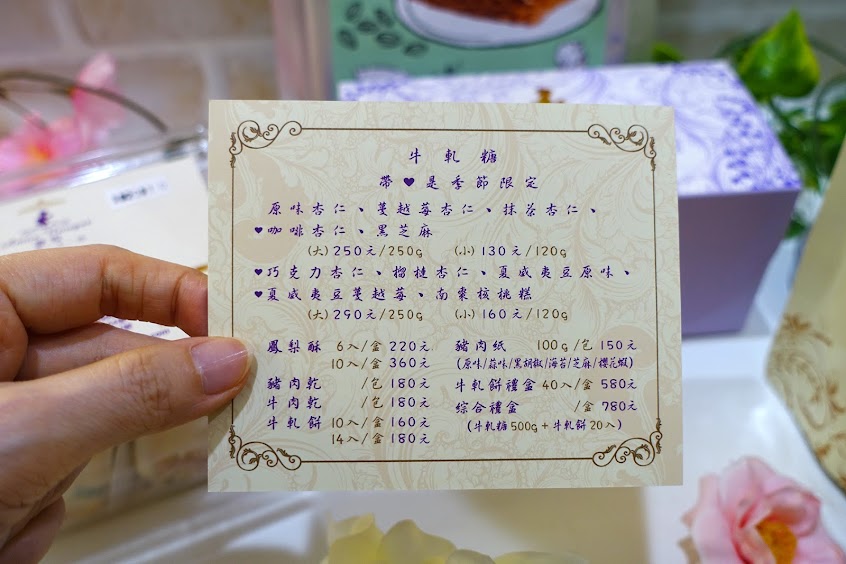 牛軋糖
帶♥是季節限定
原味杏仁、蔓越莓杏仁、抹茶杏仁、
♥咖啡杏仁、黑芝麻
(大)250元/250g (小)130元/120g
♥巧克力杏仁、榴槤杏仁、夏威夷豆原味、
♥夏威夷豆蔓越莓、南棗核桃糕
(大)290元/250g (小)160元/120g
鳳梨酥 6入/盒 220元
10入/盒 360元
豬肉乾 /包 180元
牛肉乾 /包 180元
牛軋餅 10入/盒 160元
14入/盒 180元
豬肉紙 100g/包 150元
(原味/蒜味/黑胡椒/海苔/芝麻/櫻花蝦)
牛軋餅禮盒 40入/盒 580元
綜合禮盒 /盒 780元
(牛軋糖500g+牛軋餅20入)